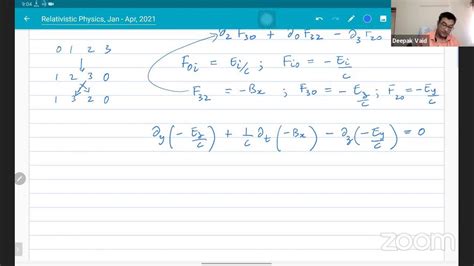 9:04
Relativistic Physics, Jan - Apr, 2021
Deepak Vaid
∂₂F₃₀ + ∂₀F₃₂ − ∂₃F₂₀
0 1 2 3
1 2 3 0
1 3 2 0
F₀ᵢ = Eᵢ/c ; Fᵢ₀ = −Eᵢ/c
F₃₂ = −Bₓ ; F₃₀ = −E_z/c ; F₂₀ = −E_y/c
∂_y(−E_z/c) + 1/c ∂_t(−Bₓ) − ∂_z(−E_y/c) = 0
zoom